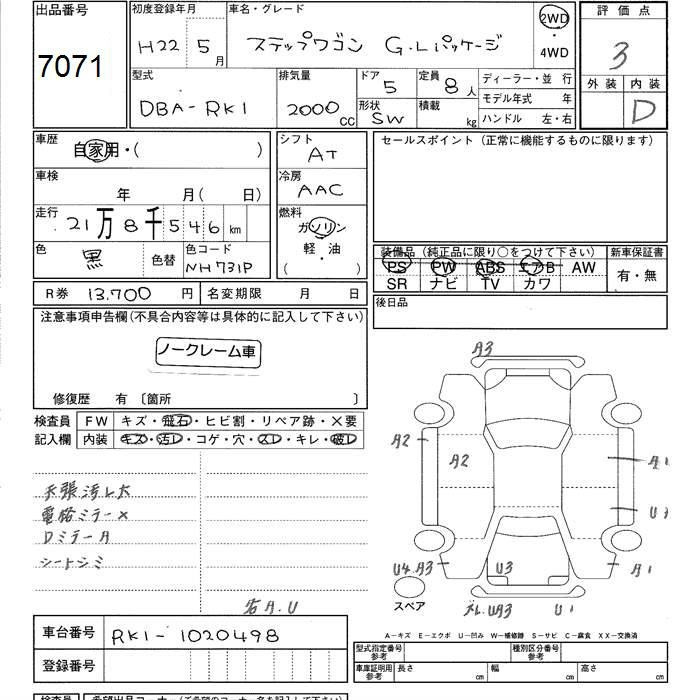 出品番号
7071
初度登録年月
H22 5月
車名・グレード
ステップワゴン G.Lパッケージ
2WD
・
4WD
評価点
3
外装 内装
D
型式
DBA-RK1
排気量
2000cc
ドア
5
形状
SW
定員
8人
積載
kg
ディーラー・並行
モデル年式 年
ハンドル 左・右
車歴
自家用・( )
車検
年 月(日)
走行
21万8千546km
色
黒
色替
色コード
NH731P
シフト
AT
冷房
AAC
燃料
ガソリン
軽・油
( ・ )
セールスポイント(正常に機能するものに限ります)
装備品(純正品に限り○をつけて下さい)
PS PW ABS エアB AW
SR ナビ TV カワ
新車保証書
有・無
後日品
R券 13.700円
名変期限 月 日
注意事項申告欄(不具合内容等は具体的に記入して下さい)
ノークレーム車
修復歴 有〔箇所 〕
検査員
記入欄
FW キズ・飛石・ヒビ割・リペア跡・×要
内装 キズ・汚レ・コゲ・穴・スレ・キレ・破レ
天張汚レ大
電格ミラー×
Dミラー A
シートシミ
各A.U
A3
A2
A2
A1
U4.A3
U3
A1
U1
スペア
A-キズ E-エクボ U-凹み W-補修跡 S-サビ C-腐食 XX-交換済
車台番号
RK1-1020498
登録番号
型式指定番号
参考
種別区分番号
参考
車庫証明用
参考
長さ cm
幅 cm
高さ cm
検査員
希望出品コーナー(ご希望のコーナー名を記入して下さい)